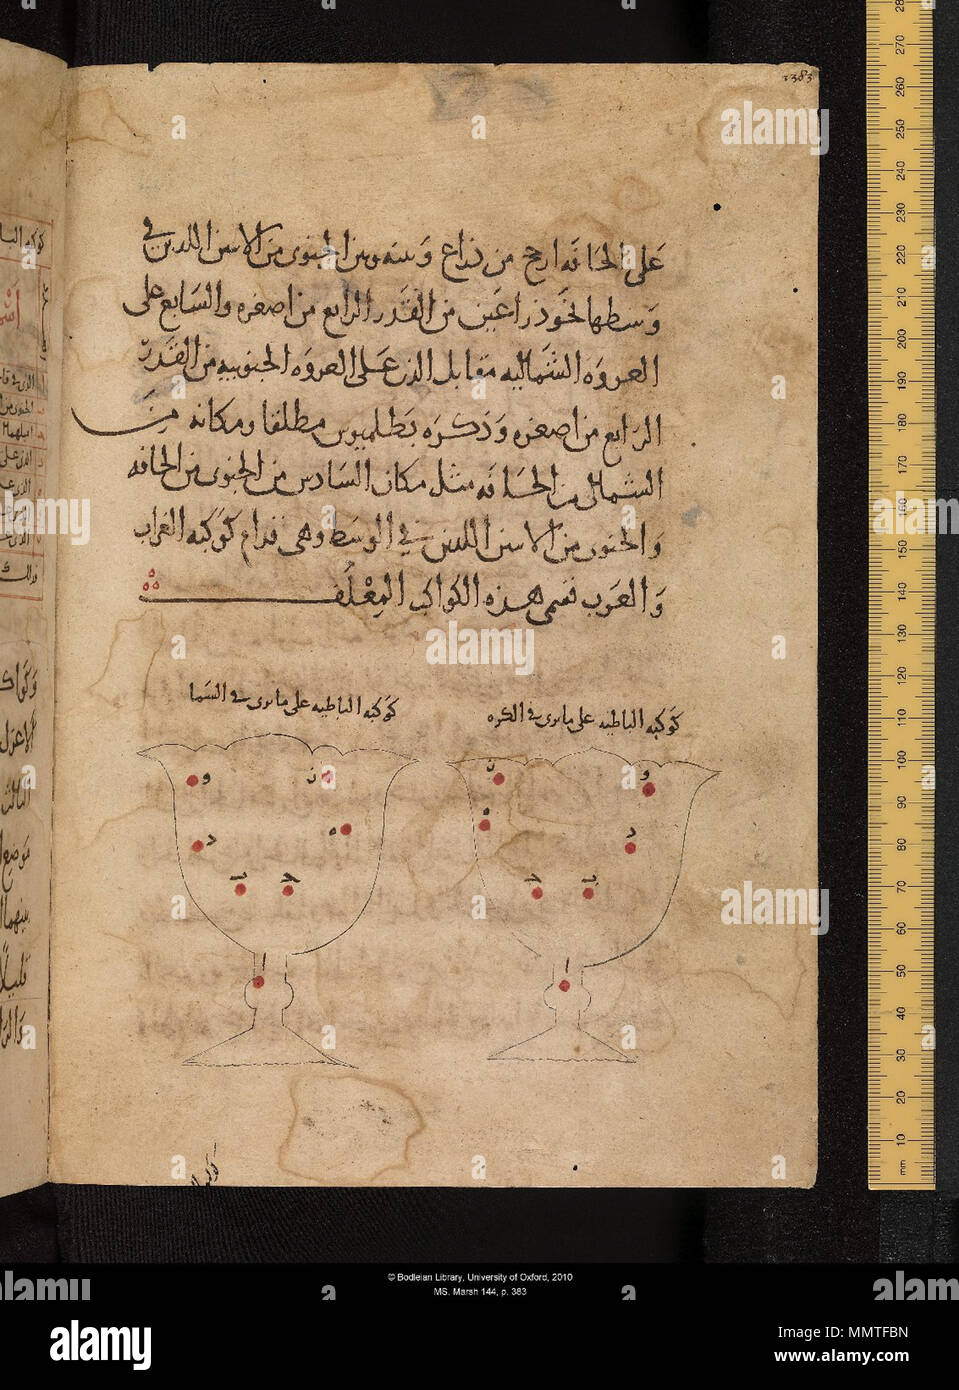 383
على الحافه ارجح من ذراع وبينه وبين الجنوبى من الاثنين اللذين فى
وسطها نحو ذراعين من القدر الرابع من اصغره والسابع على
العروه الشماليه مقابل الذى على العروه الجنوبيه من القدر
الرابع من اصغره وذكره بطلميوس مطلقا ومكانه من
الشمالى من الحافه مثل مكان السادس من الجنوبى من الحافه
والجنوبى من الاثنين اللذين فى الوسط وهى قدام كوكبه الغراب
والعرب تسمى هذه الكواكب المعلف
كوكبه الباطيه على ما يرى فى الكره
كوكبه الباطيه على ما يرى فى السما
ز و
ه د
ج ب
ا
و ز
د ه
ب ج
ا
© Bodleian Library, University of Oxford, 2010
MS. Marsh 144, p. 383
mm 10 20 30 40 50 60 70 80 90 100 110 120 130 140 150 160 170 180 190 200 210 220 230 240 250 260 270
alamy
Image ID: MMTFBN
www.alamy.com